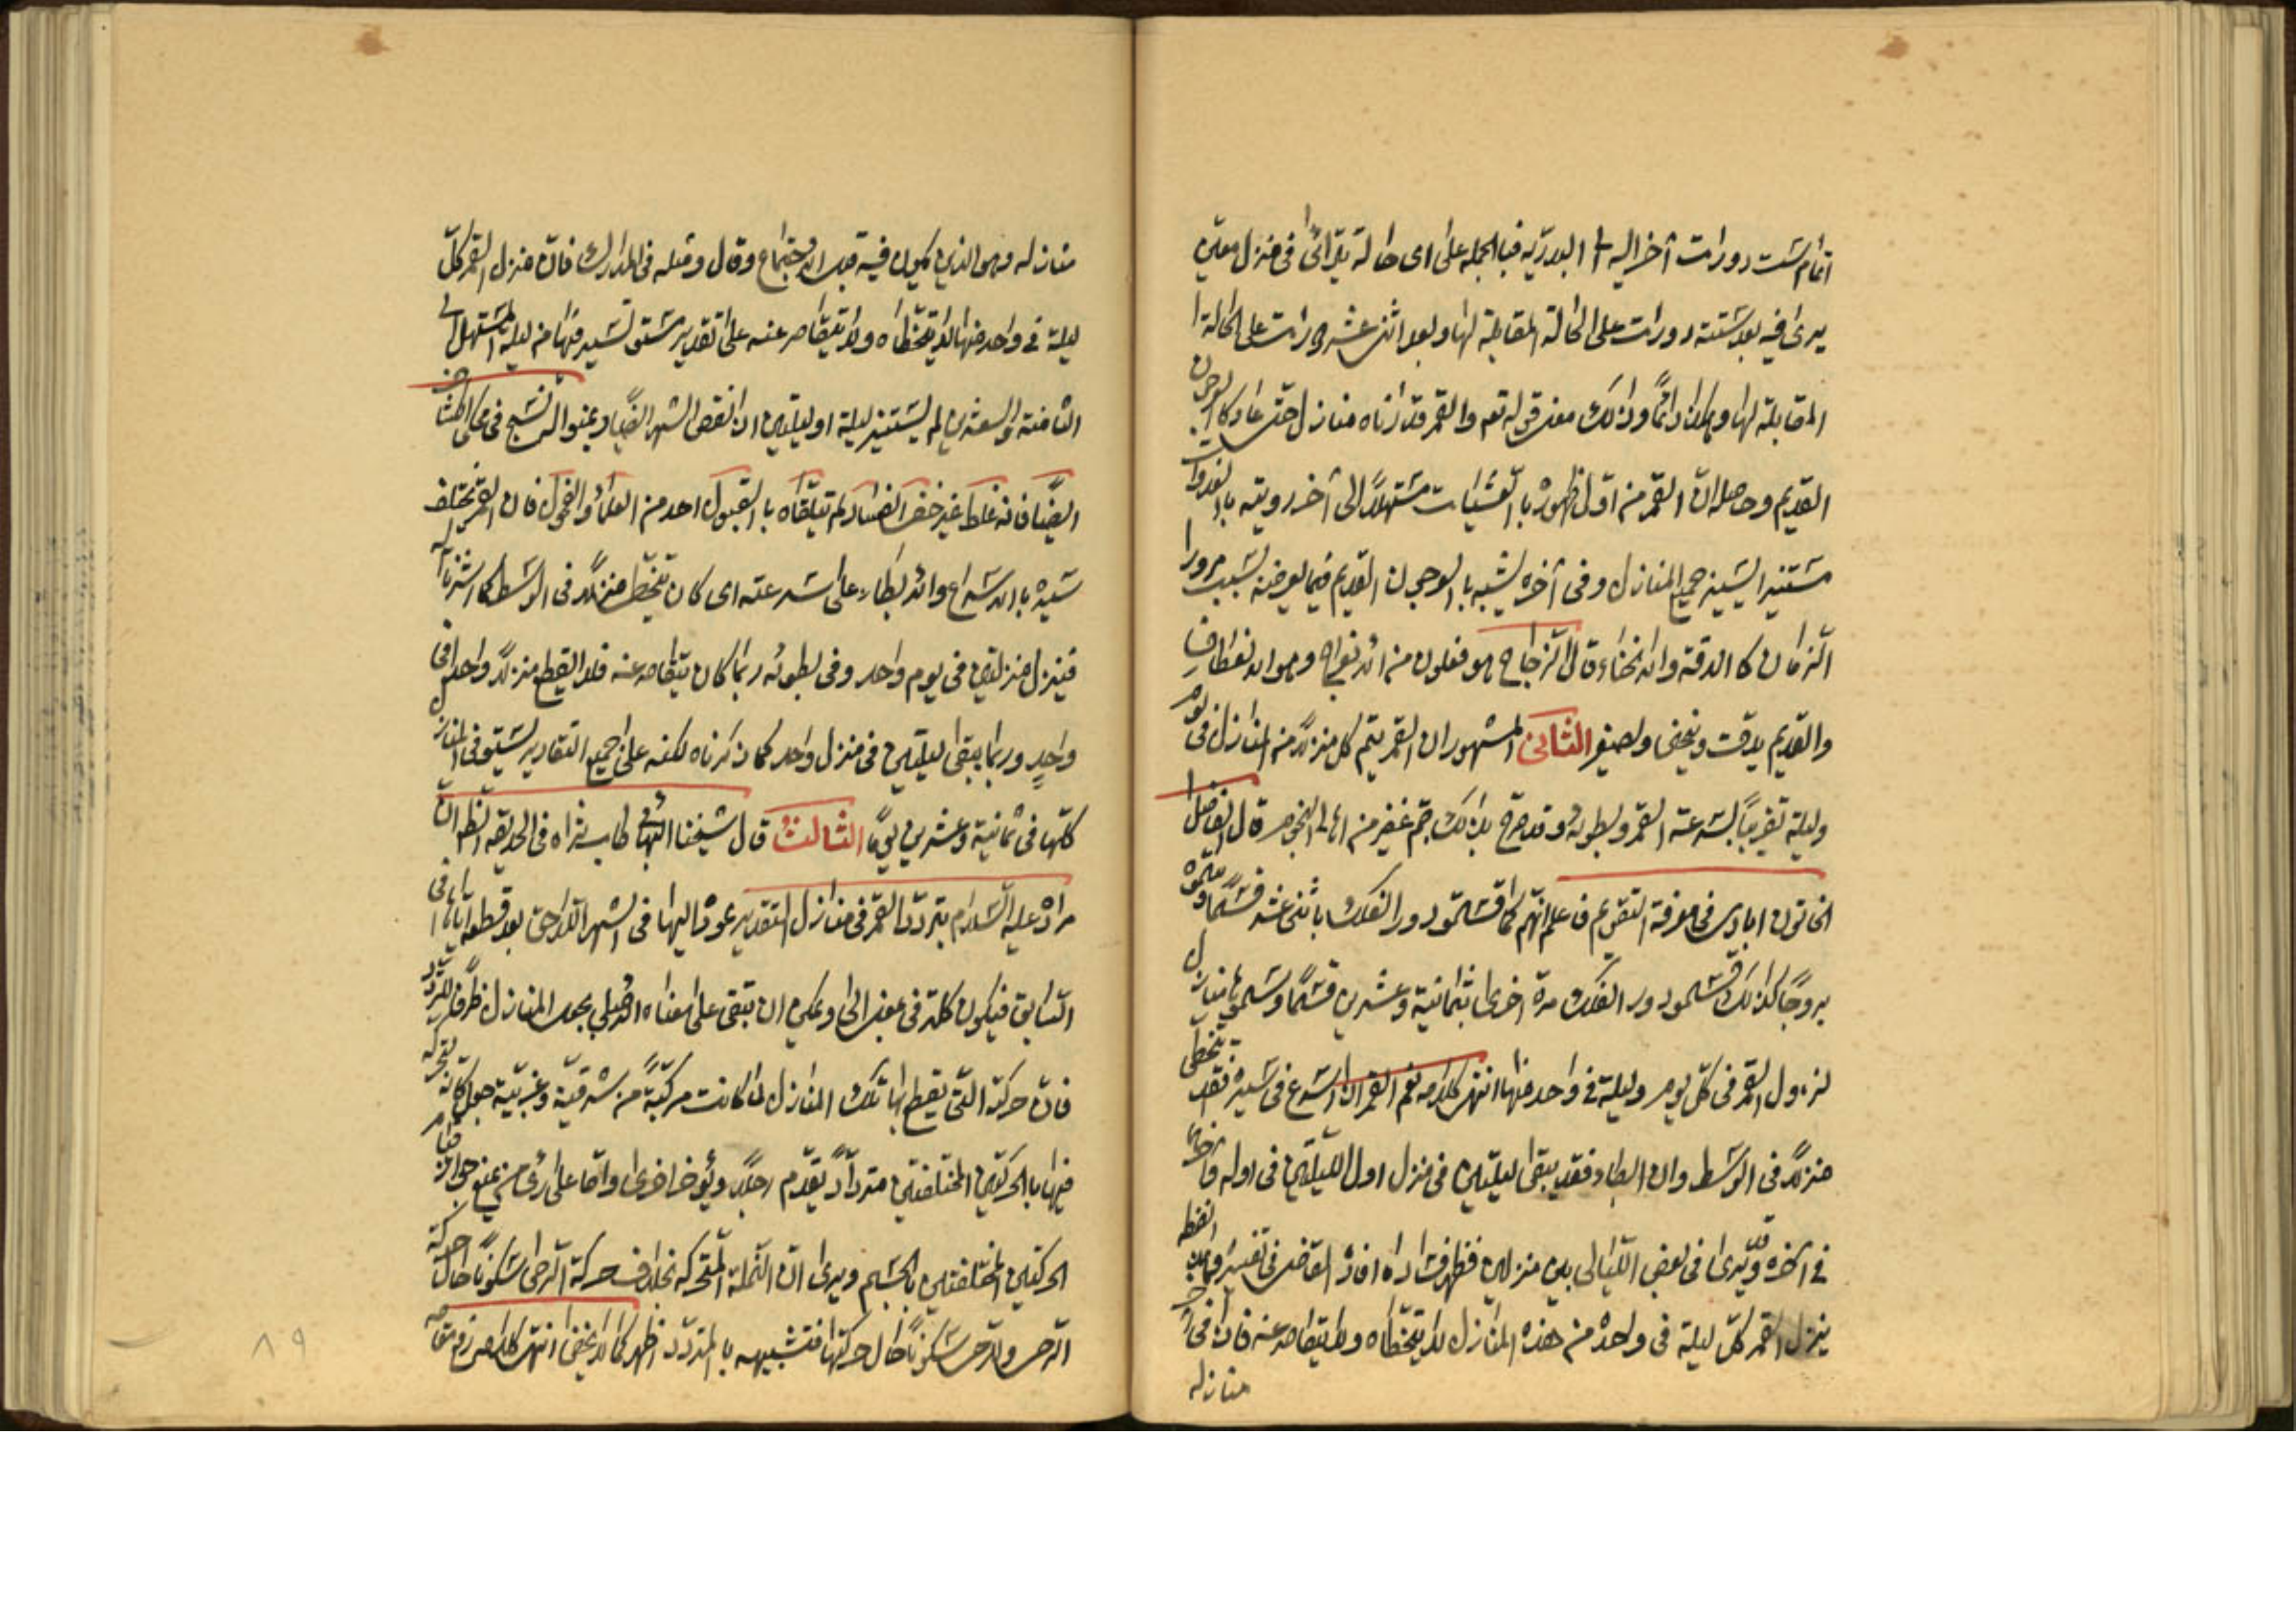 اتمام ست دورات آخر اليه البدريه فبالجمله على اى حالة يترائى فى منزل معين
يرى فيه بعد ستة دورات على الحالة المقابلة لها وبعد اثنى عشر دورات على الحالة
المقابلة لها وهكذا دائمًا وذلك معنى قوله تعم والقمر قدرناه منازل حتى عاد كالعرجون
القديم وحاصله ان القمر من اول ظهوره بالعشيات مستهلاً الى آخر رويته بالغدوات
مستنيرا يسير جميع المنازل وفى آخره يشبه بالعرجون القديم فيما يعرضه بسبب مرور
الزمان كالدقة والانحناء قال الزجاج هو فعلون من الانعراج وهو الانعطاف
والقديم يدقت وينحنى ويصفر الثانى المشهور ان القمر يتم كل منزلاً من المنازل فى يوم
وليلة تقريباً لسرعته القمر وبطوئه وقد صرح بذلك جم غفير من اهالى النجوم قال الفاضل
الخاتون ابادى فى معرفة التقويم فاعلم انهم كما قسموا دور الفلك باثنى عشر قسمًا وسموه
بروجًا كذلك قسموا دور الفلك مرة اخرى بثمانية وعشرين قسمًا وسموها منازل
لنزول القمر فى كل يوم وليلة فى واحد منها انتهى كلامه نعم القمر ان اسرع فى سيره فقد يتخطى
منزلاً فى الوسط وان ابطاء فقد يبقى ليلتين فى منزل اول الليلتين فى اوله وآخرهما
فى آخره وقد يرى فى بعض الليالى بين منزلين فظهر فساد ما افاد القاضى فى تفسير
ينزل القمر كل ليلة فى واحد من هذه المنازل لا يتخطاه ولا يتقاصر عنه فاذا كان فى آخر
منازله
منازله وهو الذى يكون فيه قبيل الاجتماع وقال ومثله فى المدارك فان منزل القمر كل
ليلة فى واحد منها لا يتخطاه ولا يتقاصر عنه على تقدير مستو يسير فيها من ليلة المستهل الى
الثامنة والعشرين ثم يستتر ليلة او ليلتين اذا نقص الشهر ايضًا
ايضًا فانه غلط غير خفى الفساد لم يتلقاه بالقبول احد من العلماء والفحول فان القمر يختلف
سيره بالاسراع والابطاء على سرعته اى كان يتخطى منزلاً فى الوسط كما اشرنا اليه
فينزل منزلتين فى يوم واحد وفى بطوئه ربما كان يتقاصر عنه فلا يقطع منزلاً واحدا فى
واحدٍ وربما يبقى ليلتين فى منزل واحد كما ذكرناه لكنه على جميع التقادير يستوفى المنازل
كلها فى ثمانية وعشرين يومًا الثالث قال شيخنا البهائى طاب ثراه فى الحديقه الظاهر ان
مراده عليه السلام بتردد القمر فى منازل التقدير عوده اليها فى الشهر اللاحق بعد قطعه اياها فى
السابق فيكون كلمة فى بمعنى الى ويمكن ان تبقى على معناه الاصلى بجعل المنازل ظرفا للتردد
فان حركة التى يقطع بها تلك المنازل لما كانت مركبةً من شرقية وغربية جعل كانه لتحركه
فيها بالحركتين المختلفتين متردداً يتقدم رجلاً ويؤخر اخرى واما على رأى من يمنع جواز قيام
الحركتين المختلفتين بالجسم ويرى ان النملة المتحركه بخلاف حركة الرحى سكونًا حال حركة
الرحى وللرحى سكونًا حال حركتها فتشبيهه بالمتردد اظهر كما لا يخفى انتهى كلامه زيد مقامه
٨٩